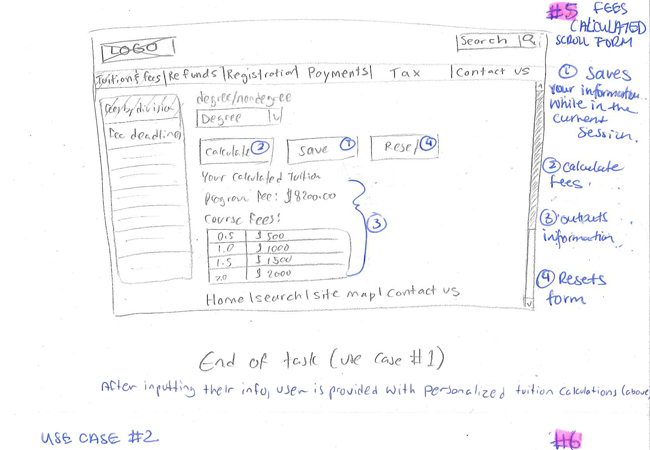 #5 FEES
CALCULATED
SCROLL FORM
LOGO
Search
Tuition & fees | Refunds | Registration | Payments | Tax | Contact us
fees by division
Fee deadlines
degree/nondegree
Degree
Calculate ②
Save ①
Reset ④
Your Calculated Tuition
Program Fee: $8200.00
Course Fees:
③
0.5 $500
1.0 $1000
1.5 $1500
2.0 $2000
Home | search | site map | contact us
① Saves
your information
while in the
current
session.
② Calculate
fees.
③ outputs
information
④ Resets
form
End of task (use case #1)
After inputting their info, user is provided with personalized tuition calculations (above
USE CASE #2
#6